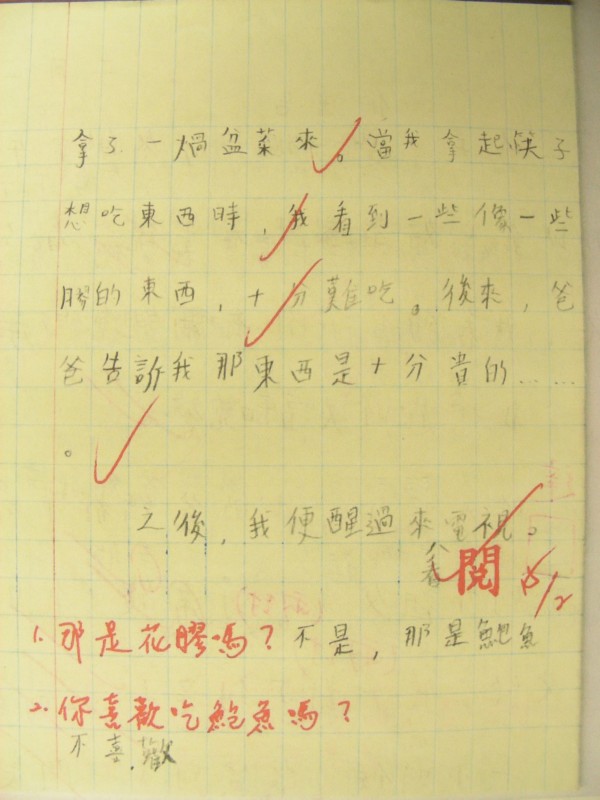 拿了一煱盆菜來。當我拿起筷子
想吃東西時，我看到一些像一些
膠的東西，十分難吃。後來，爸
爸告訴我那東西是十分貴的……
。
之後，我便醒過來電視。
看
閱 15/2
1. 那是花膠嗎？不是，那是鮑魚
2. 你喜歡吃鮑魚嗎？
不喜歡